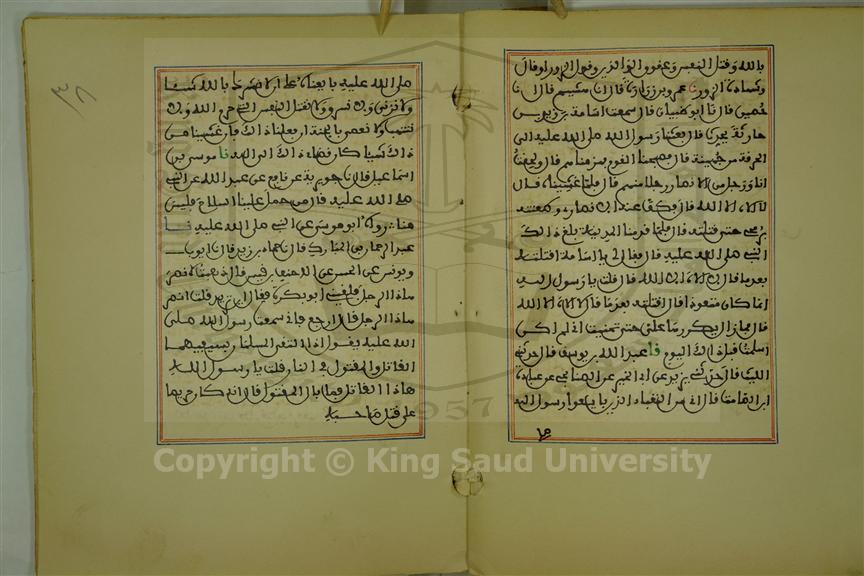 بالله وقتل النفس وعقوق الوالدين وقول الزور او قال
وشهادة الزور نا عمرو بن زرارة قال انا هشيم قال انا
حصين قال نا ابو ظبيان قال سمعت اسامة بن زيد بن
حارثة يحدث قال بعثنا رسول الله صلى الله عليه الى
الحرقة من جهينة قال فصبحنا القوم فهزمناهم قال ولحقت
انا ورجل من الانصار رجلا منهم قال فلما غشيناه قال
لا اله الا الله قال فكف عنه الانصاري وطعنته
برمحي حتى قتلته قال فلما قدمنا المدينة بلغ ذلك
النبي صلى الله عليه قال فقال لي يا اسامة اقتلته
بعد ما قال لا اله الا الله قال قلت يا رسول الله
انما كان متعوذا قال اقتلته بعد ما قال لا اله الا الله
قال فما زال يكررها علي حتى تمنيت اني لم اكن
اسلمت قبل ذلك اليوم نا عبد الله بن يوسف قال حدثني
الليث قال حدثني يزيد عن ابي الخير عن الصنابحي عن عبادة
ابن الصامت قال اني من النقباء الذين بايعوا رسول الله
صلى
٣٨
صلى الله عليه بايعناه على ان لا نشرك بالله شيئا
ولا نزني ولا نسرق ولا نقتل النفس التي حرم الله ولا
ننتهب ولا نعصي بالجنة ان فعلنا ذلك فان غشينا من
ذلك شيئا كان قضاء ذلك الى الله نا موسى بن
اسماعيل قال نا جويرية عن نافع عن عبد الله عن النبي
صلى الله عليه قال من حمل علينا السلاح فليس
منا رواه ابو موسى عن النبي صلى الله عليه نا
عبد الرحمن بن المبارك قال نا حماد بن زيد قال نا ايوب
ويونس عن الحسن عن الاحنف بن قيس قال ذهبت لانصر
هذا الرجل فلقيني ابو بكرة فقال اين تريد قلت انصر
هذا الرجل قال ارجع فاني سمعت رسول الله صلى
الله عليه يقول اذا التقى المسلمان بسيفيهما
القاتل والمقتول في النار قلت يا رسول الله
هذا القاتل فما بال المقتول قال انه كان حريصا
على قتل صاحبه
Copyright © King Saud University
1957